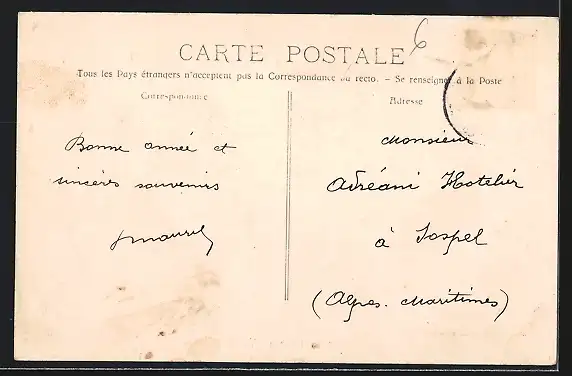 6
CARTE POSTALE
Tous les Pays étrangers n'acceptent pas la Correspondance au recto. – Se renseigner à la Poste
Correspondance
Adresse
Bonne année et
sincères souvenirs
Monsieur
Adréani Hotelier
à Sospel
(Alpes. Maritimes)